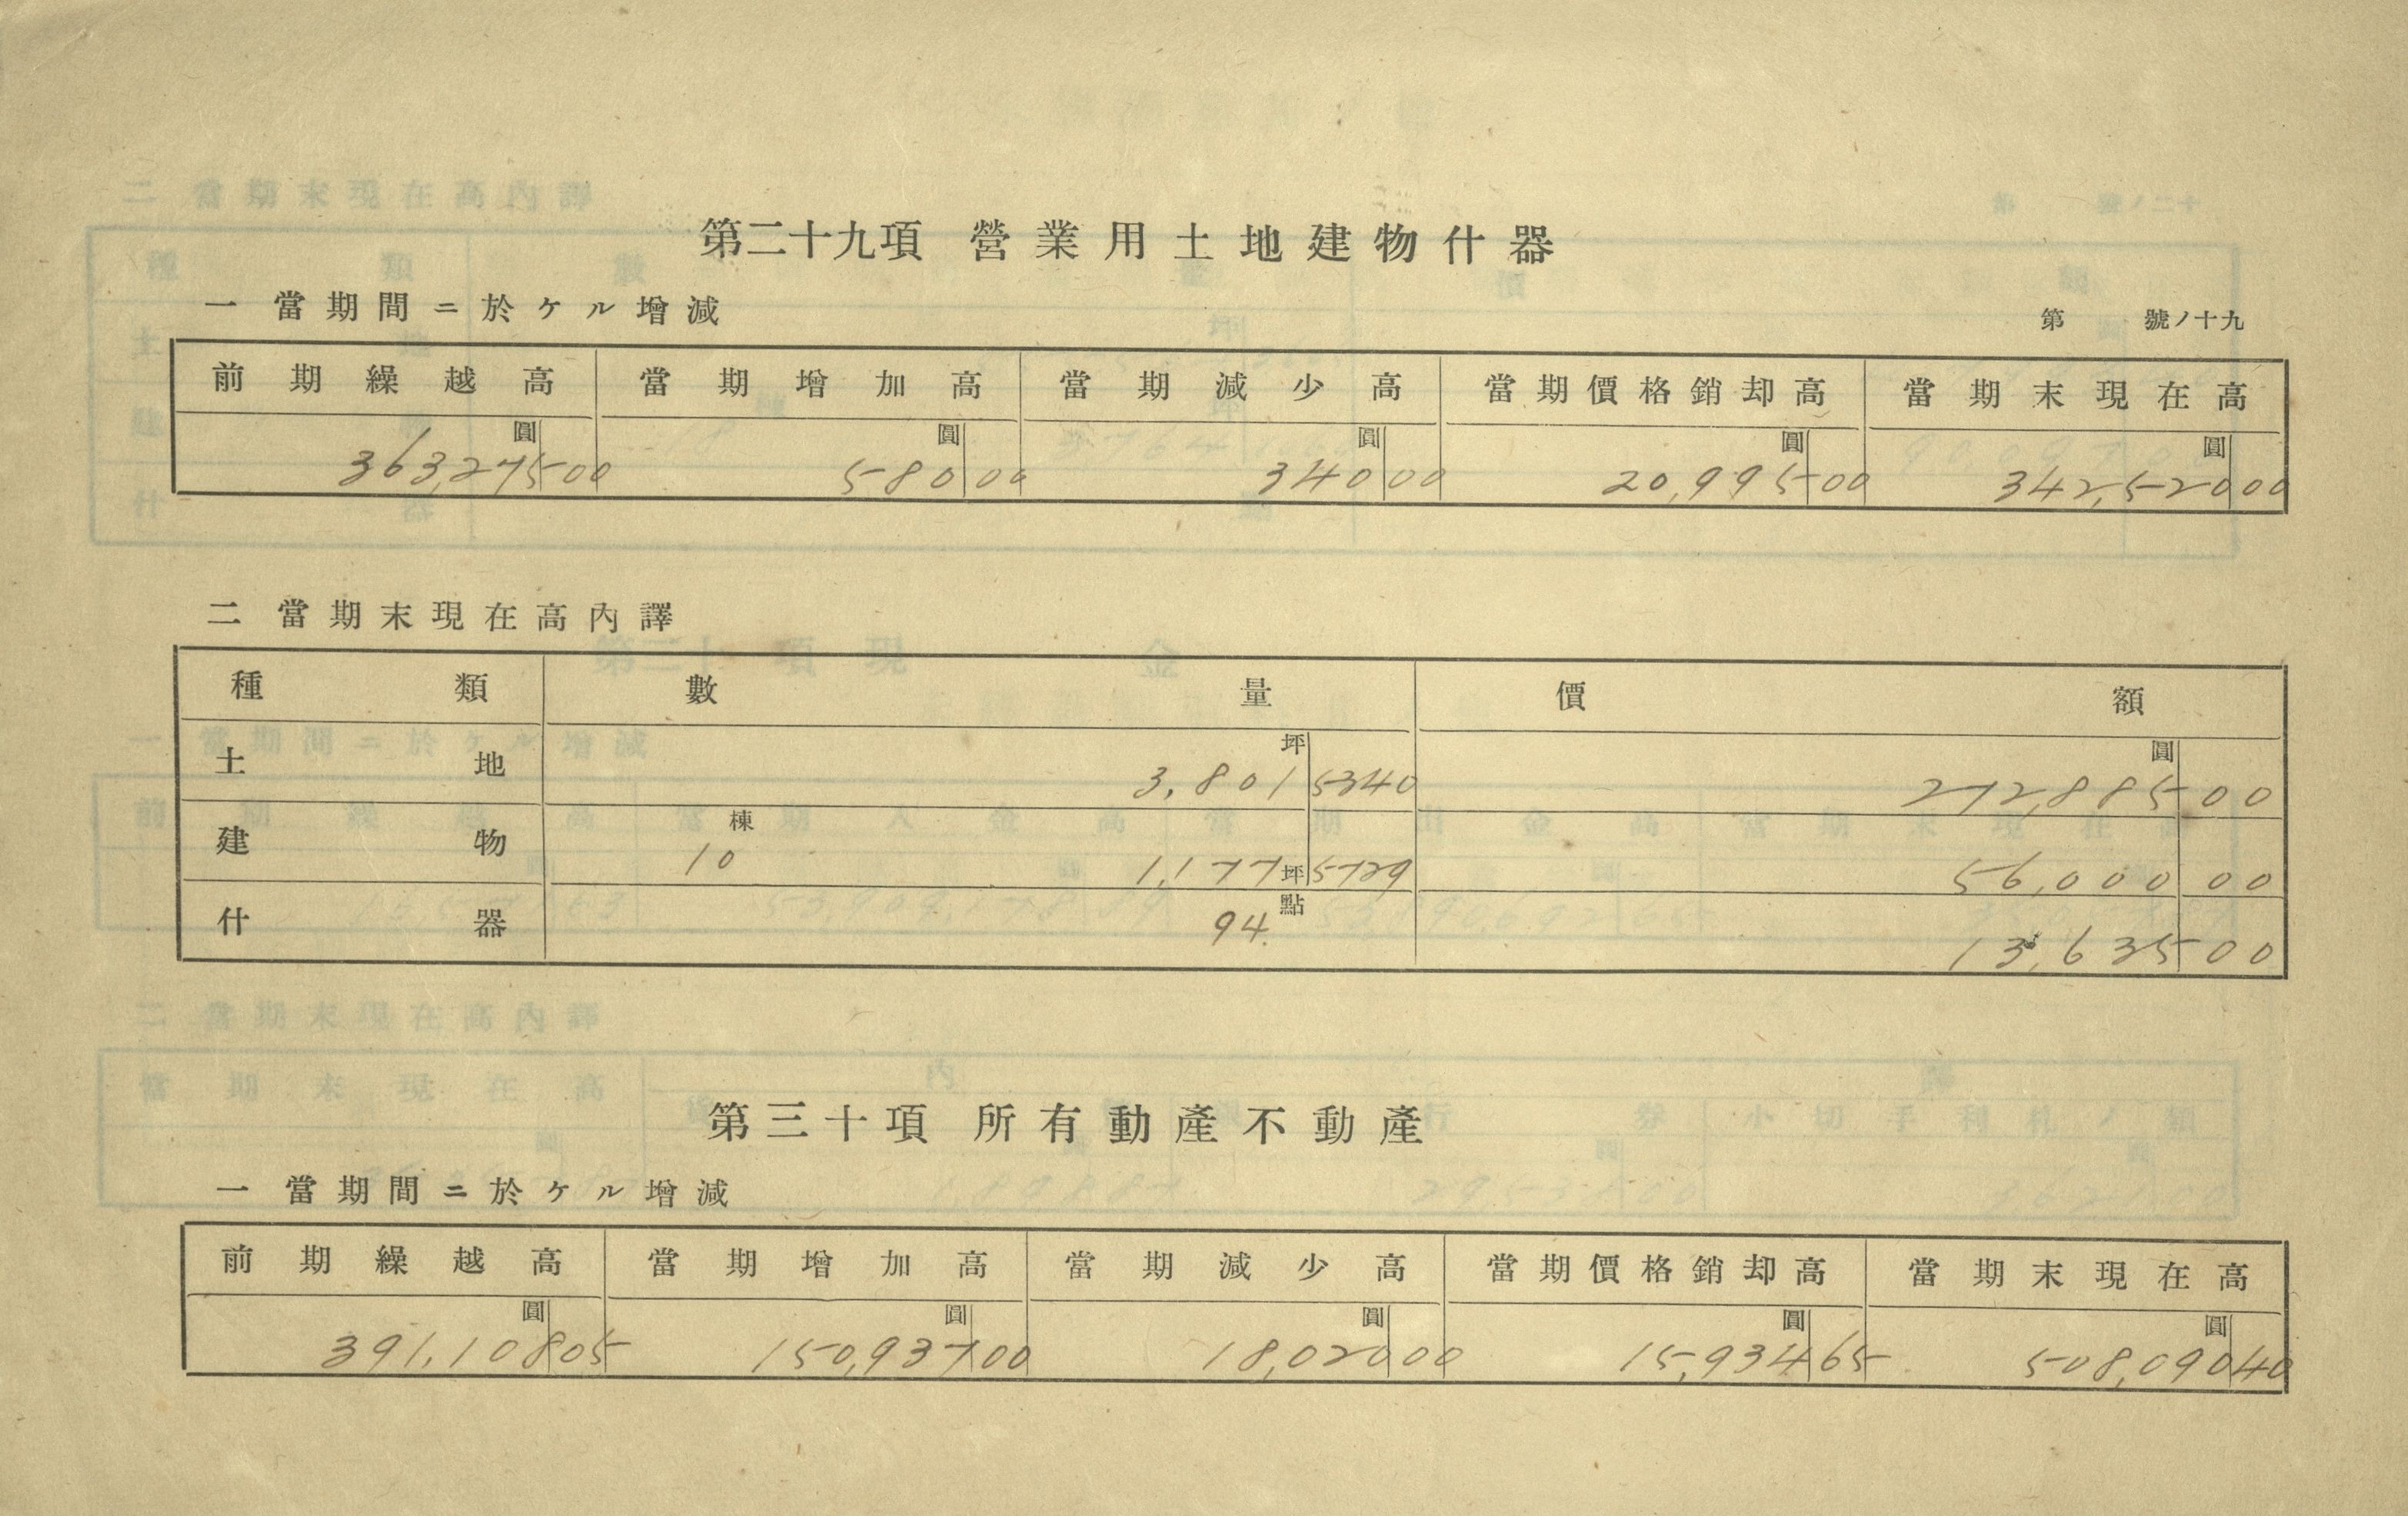 第二十九項 營業用土地建物什器
一 當期間ニ於ケル增減
第 號ノ十九
前期繰越高 當期增加高 當期減少高 當期價格銷却高 當期末現在高
圓 圓 圓 圓 圓
363,275 00 580 00 340 00 20,995 00 342,520 00
二 當期末現在高內譯
種類 數量 價額
坪 圓
土地 3,801 5340 272,885 00
棟
建物 10 1,177坪5729 56,000 00
點
什器 94. 13,635 00
第三十項 所有動產不動產
一 當期間ニ於ケル增減
前期繰越高 當期增加高 當期減少高 當期價格銷却高 當期末現在高
圓 圓 圓 圓 圓
391,108 05 150,937 00 18,020 00 15,934 65 508,090 40